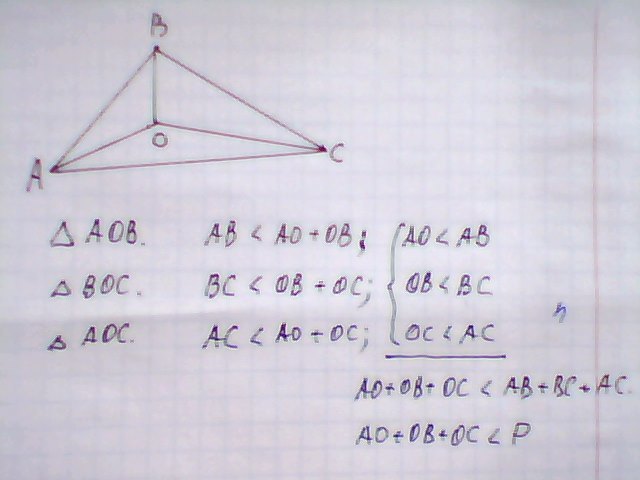 B
O
A
C
△ AOB. AB < AO + OB; { AO < AB
△ BOC. BC < OB + OC; OB < BC
△ AOC. AC < AO + OC; OC < AC
AO+OB+OC < AB+BC+AC.
AO+OB+OC < P